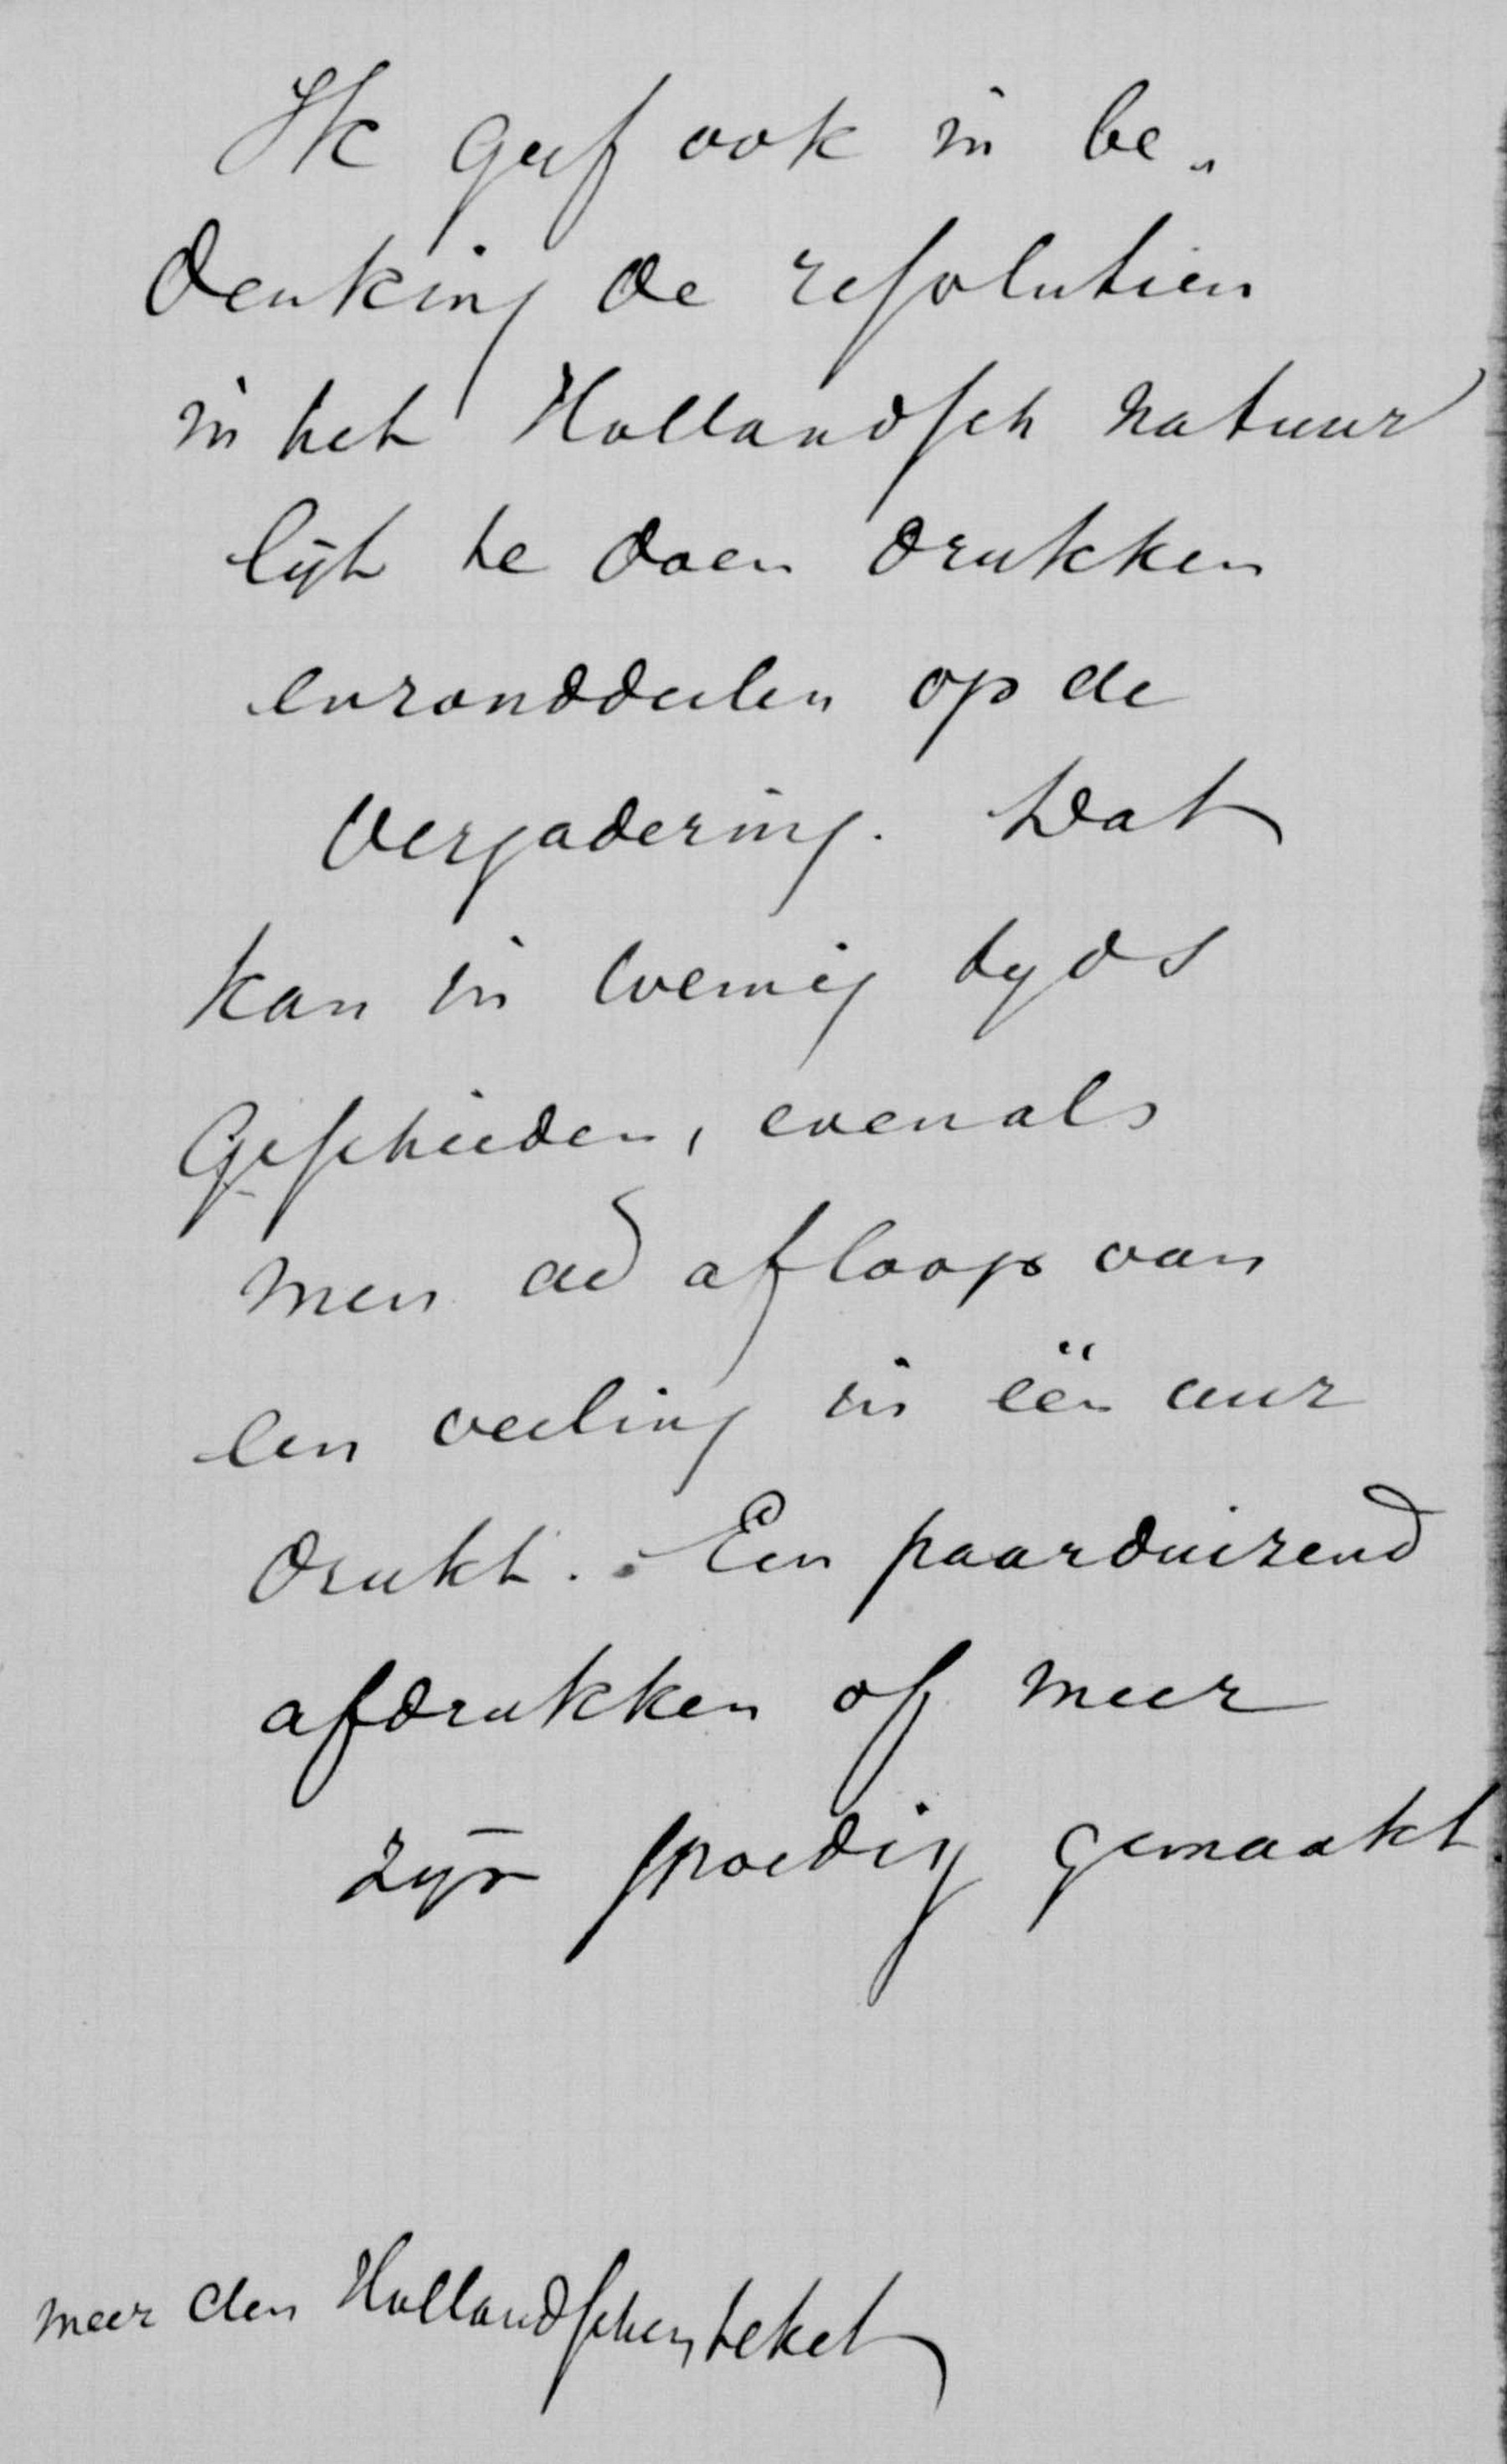 Ik geef ook in be„
denking de resolutien
in het Hollandsch natuur
lijk te doen drukken
en ronddeelen op de
Vergadering. Dat
kan in weinig tyds
Geschieden, evenals
men ad afloop van
een veiling in één uur
drukt. Een paarduizend
afdrukken of meer
zijn spoedig gemaakt
meer den Hollandschen tekst